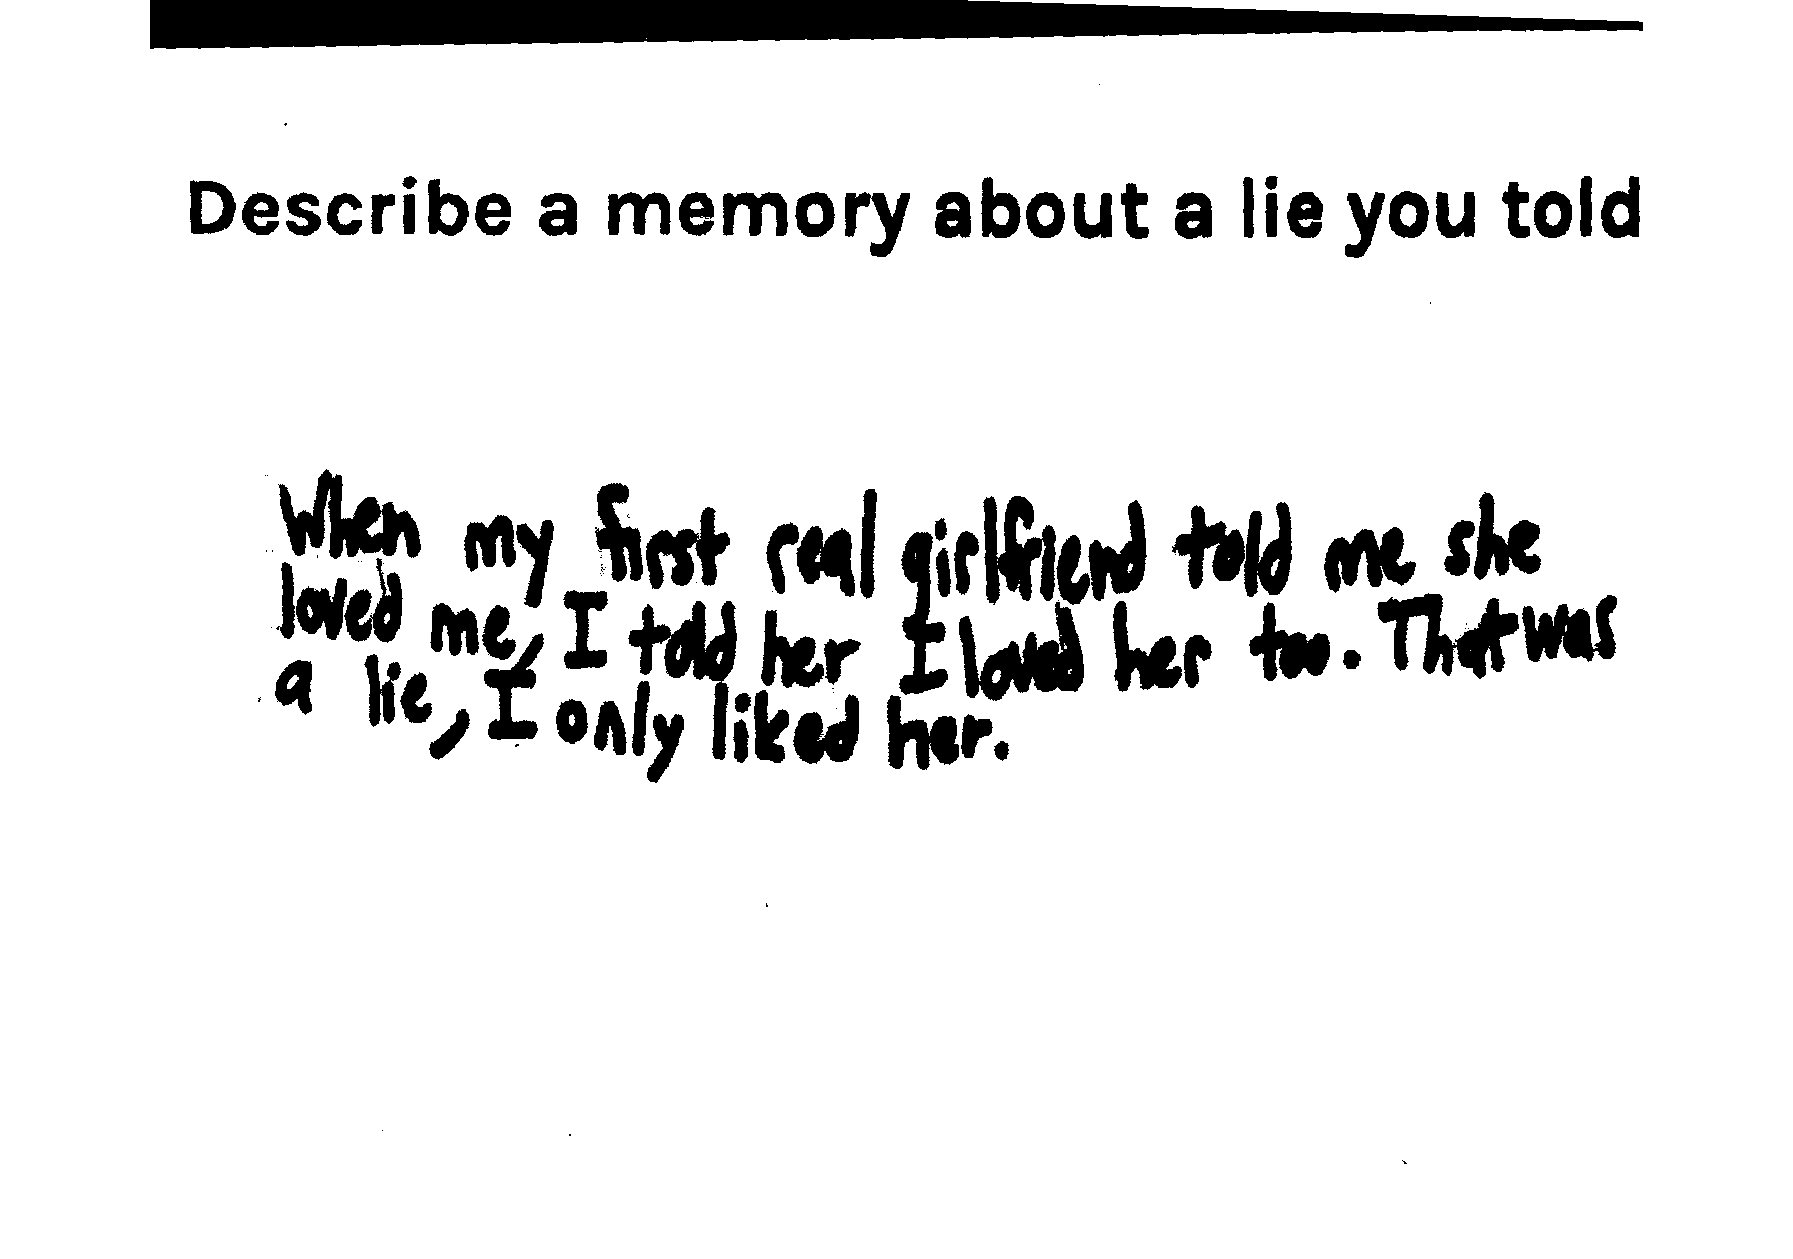 Describe a memory about a lie you told
When my first real girlfriend told me she
loved me, I told her I loved her too. That was
a lie, I only liked her.